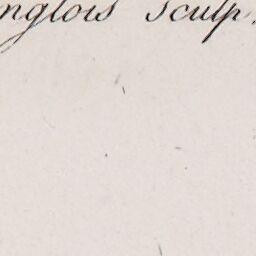 nglois Sculp.